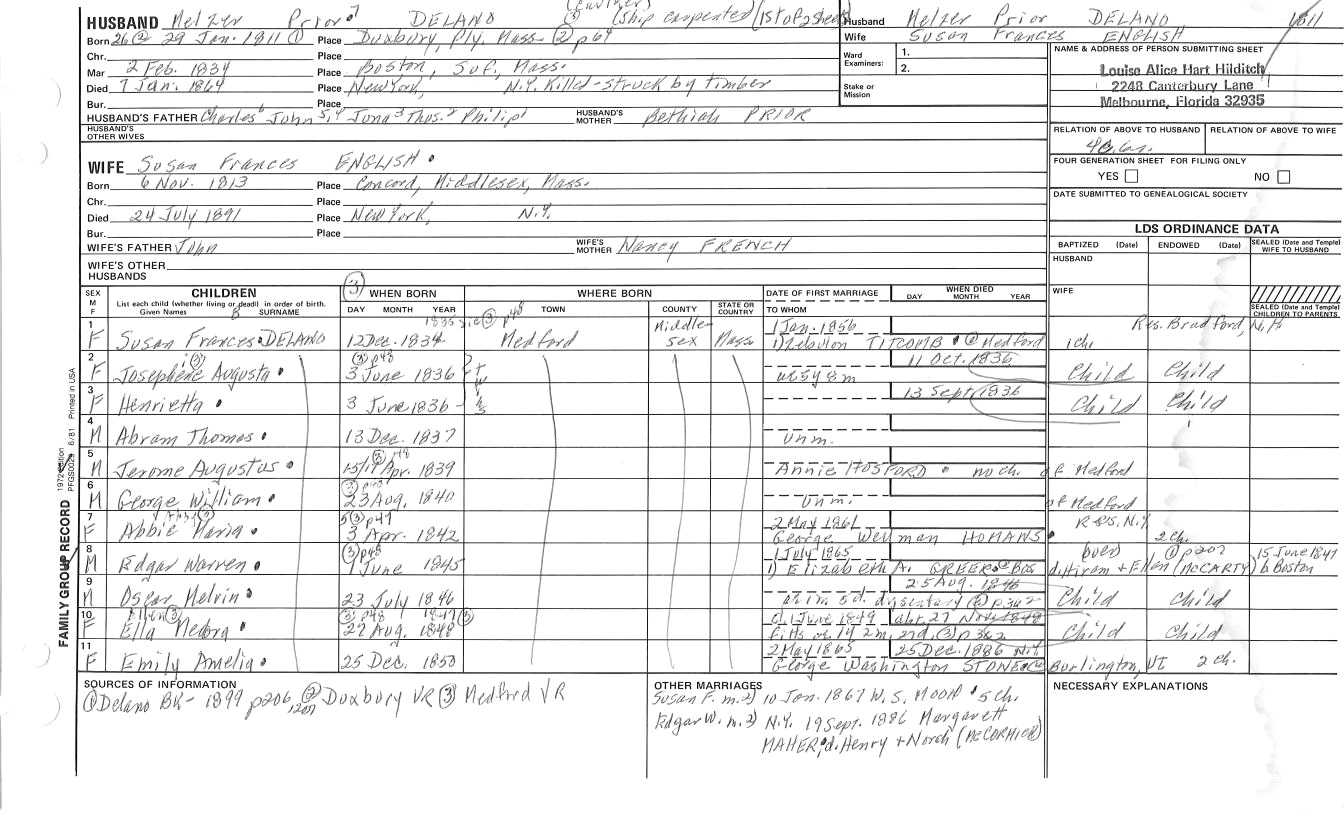 HUSBAND Melzer Prior 7 DELANO ③ (Ship carpenter) (1st of 2 sheets)
Born 26② 29 Jan. 1811① Place Duxbury, Ply. Mass. ② p64
Chr. Place
Mar 2 Feb. 1834 Place Boston, Suf. Mass.
Died 7 Jan. 1864 Place New York, N.Y. Killed-struck by timber
Bur. Place
HUSBAND'S FATHER Charles 6 John 5,4 Jona 3 Thos. 2 Philip 1 HUSBAND'S MOTHER Bethiah PRIOR
HUSBAND'S OTHER WIVES
Husband Melzer Prior DELANO
Wife Susan Frances ENGLISH
Ward Examiners: 1.
2.
Stake or Mission
NAME & ADDRESS OF PERSON SUBMITTING SHEET
Louise Alice Hart Hilditch
2248 Canterbury Lane
Melbourne, Florida 32935
RELATION OF ABOVE TO HUSBAND RELATION OF ABOVE TO WIFE
FOUR GENERATION SHEET FOR FILING ONLY
YES NO
DATE SUBMITTED TO GENEALOGICAL SOCIETY
WIFE Susan Frances ENGLISH
Born 6 Nov. 1813 Place Concord, Middlesex, Mass.
Chr. Place
Died 24 July 1891 Place New York, N.Y.
Bur. Place
WIFE'S FATHER John WIFE'S MOTHER Nancy FRENCH
WIFE'S OTHER HUSBANDS
LDS ORDINANCE DATA
BAPTIZED (Date) ENDOWED (Date) SEALED (Date and Temple) WIFE TO HUSBAND
HUSBAND
WIFE
SEALED (Date and Temple) CHILDREN TO PARENTS
SEX M F CHILDREN List each child (whether living or dead) in order of birth. Given Names SURNAME
③ WHEN BORN DAY MONTH YEAR
WHERE BORN TOWN COUNTY STATE OR COUNTRY
DATE OF FIRST MARRIAGE TO WHOM
WHEN DIED DAY MONTH YEAR
1 F Susan Frances DELANO 1835 sic ③ p48 12 Dec. 1834 Medford Middlesex Mass. 1 Jan. 1856 1) Zebulon TITCOMB @ Medford 1 ch. Res. Bradford, N.H.
2 F Josephene Augusta ③ p48 3 June 1836 11 Oct. 1836 Child Child
3 F Henrietta 3 June 1836 13 Sept 1836 Child Child
4 M Abram Thomas 13 Dec. 1837 Unm.
5 M Jerome Augustus 15/19 Apr. 1839 Annie HOSFORD no ch. of Medford
6 M George William 23 Aug. 1840 Unm. of Medford
7 F Abbie Maria ③ p47 3 Apr. 1842 2 May 1861 George Wellman HOMANS Res. N.Y. 2 ch.
8 M Edgar Warren ③ p48 1 June 1845 1 July 1865 1) Elizabeth A. GREER @ Bos d. Hiram + Ellen (McCARTY) b Boston ① p207 15 June 1847
9 M Oscar Melvin 23 July 1846 25 Aug. 1846 dysentary ③ p362 Child Child
10 F Ellen ③ Ella Medora ③ p48 1847 ③ 27 Aug. 1848 d. 1 June 1849 abt. 27 Nov. 1848 fits ③ p362 Child Child
11 F Emily Amelia 25 Dec. 1850 2 May 1865 25 Dec. 1886 N.Y. George Washington STONE Burlington, VT 2 ch.
SOURCES OF INFORMATION
① Delano BK- 1899 p206, 207 ② Duxbury VR ③ Medford VR
OTHER MARRIAGES
Susan F. m. 2) 10 Jan. 1867 W. S. MOON 5 ch.
Edgar W. m. 2) N.Y. 19 Sept. 1886 Margarett
MAHER, d. Henry + Norah (McCORMICK)
NECESSARY EXPLANATIONS
FAMILY GROUP RECORD
PFGS0029 6/81 Printed in USA